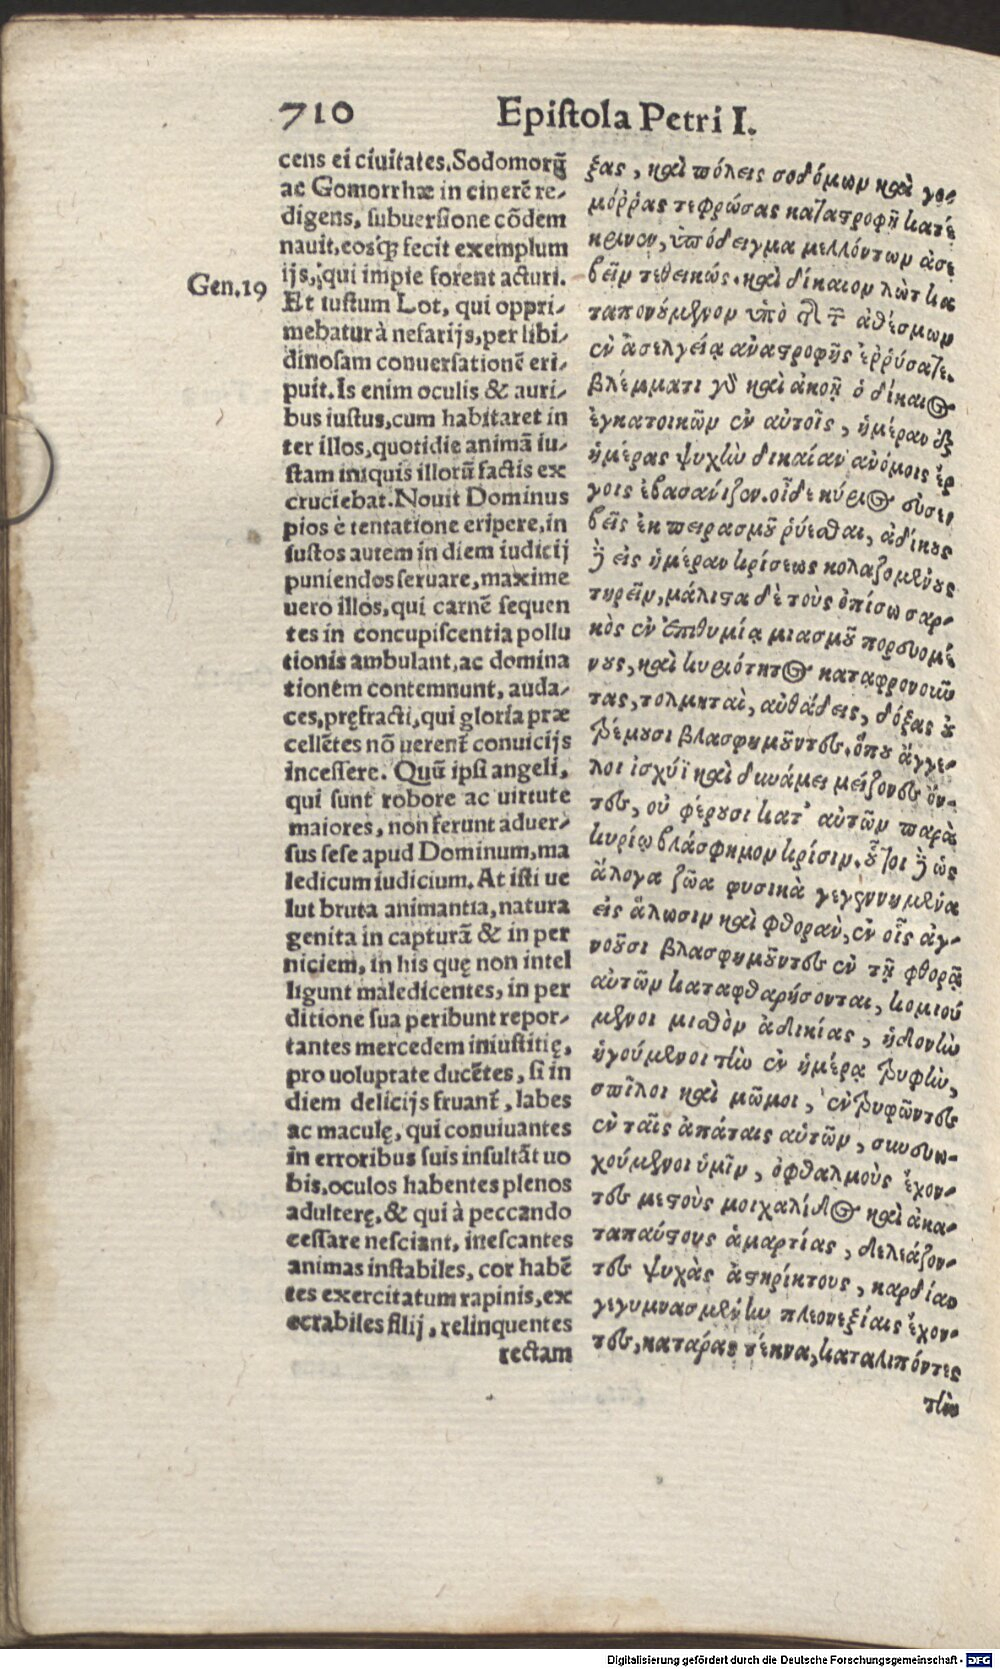 710
Epiſtola Petri I.
cens ei ciuitates. Sodomorũ
ac Gomorrhæ in cinerẽ re-
digens, ſubuerſione cõdem
nauit, eosq; fecit exemplum
ijs, qui impie forent acturi.
Gen.19
Et iuſtum Lot, qui oppri-
mebatur à nefarijs, per libi-
dinoſam conuerſationẽ eri-
puit. Is enim oculis & auri-
bus iuſtus, cum habitaret in
ter illos, quotidie animã iu-
ſtam iniquis illorũ factis ex
cruciebat. Nouit Dominus
pios è tentatione eripere, in
iuſtos autem in diem iudicij
puniendos ſeruare, maxime
uero illos, qui carnẽ ſequen
tes in concupiſcentia pollu
tionis ambulant, ac domina
tionem contemnunt, auda-
ces, pręfracti, qui gloria præ
cellẽtes nõ uerent̃ conuicijs
inceſſere. Quũ ipſi angeli,
qui ſunt robore ac uirtute
maiores, non ferunt aduer-
ſus ſeſe apud Dominum, ma
ledicum iudicium. At iſti ue
lut bruta animantia, natura
genita in capturã & in per
niciem, in his quę non intel
ligunt maledicentes, in per
ditione ſua peribunt repor-
tantes mercedem iniuſtitię,
pro uoluptate ducẽtes, ſi in
diem delicijs fruant̃, labes
ac maculę, qui conuiuantes
in erroribus ſuis inſultãt uo
bis, oculos habentes plenos
adulterę, & qui à peccando
ceſſare neſciant, ineſcantes
animas inſtabiles, cor habẽ
tes exercitatum rapinis, ex
ecrabiles filij, relinquentes
rectam
ξας, καὶ πόλεις σοδόμων καὶ γο-
μόῤῥας τεφρώσας καταστροφῇ κατέ
κρινεν, ὑπόδειγμα μελλόντων ἀσε
βεῖν τεθεικώς. καὶ δίκαιον λὼτ κα
ταπονούμενον ὑπὸ τῆς τῶν ἀθέσμων
ἐν ἀσελγείᾳ ἀναστροφῆς ἐῤῥύσατο.
βλέμματι γὰρ καὶ ἀκοῇ ὁ δίκαιος
ἐγκατοικῶν ἐν αὐτοῖς, ἡμέραν ἐξ
ἡμέρας ψυχὴν δικαίαν ἀνόμοις ἔρ
γοις ἐβασάνιζεν. οἶδε κύριος εὐσε-
βεῖς ἐκ πειρασμοῦ ῥύεσθαι, ἀδίκους
δὲ εἰς ἡμέραν κρίσεως κολαζομένους
τηρεῖν, μάλιστα δὲ τοὺς ὀπίσω σαρ-
κὸς ἐν ἐπιθυμίᾳ μιασμοῦ πορευομέ-
νους, καὶ κυριότητος καταφρονοῦν
τας, τολμηταὶ, αὐθάδεις, δόξας οὐ
τρέμουσι βλασφημοῦντες. ὅπου ἄγγε-
λοι ἰσχύϊ καὶ δυνάμει μείζονες ὄν-
τες, οὐ φέρουσι κατ᾽ αὐτῶν παρὰ
κυρίῳ βλάσφημον κρίσιν. οὗτοι δὲ ὡς
ἄλογα ζῶα φυσικὰ γεγεννημένα
εἰς ἅλωσιν καὶ φθορὰν, ἐν οἷς ἀγ-
νοοῦσι βλασφημοῦντες ἐν τῇ φθορᾷ
αὐτῶν καταφθαρήσονται, κομιού
μενοι μισθὸν ἀδικίας, ἡδονὴν
ἡγούμενοι τὴν ἐν ἡμέρᾳ τρυφὴν,
σπῖλοι καὶ μῶμοι, ἐντρυφῶντες
ἐν ταῖς ἀπάταις αὐτῶν, συνευω-
χούμενοι ὑμῖν, ὀφθαλμοὺς ἔχον-
τες μεστοὺς μοιχαλίδος καὶ ἀκα-
ταπαύστους ἁμαρτίας, δελεάζον-
τες ψυχὰς ἀστηρίκτους, καρδίαν
γεγυμνασμένην πλεονεξίαις ἔχον-
τες, κατάρας τέκνα, καταλιπόντες
τὴν
Digitalisierung gefördert durch die Deutsche Forschungsgemeinschaft - DFG